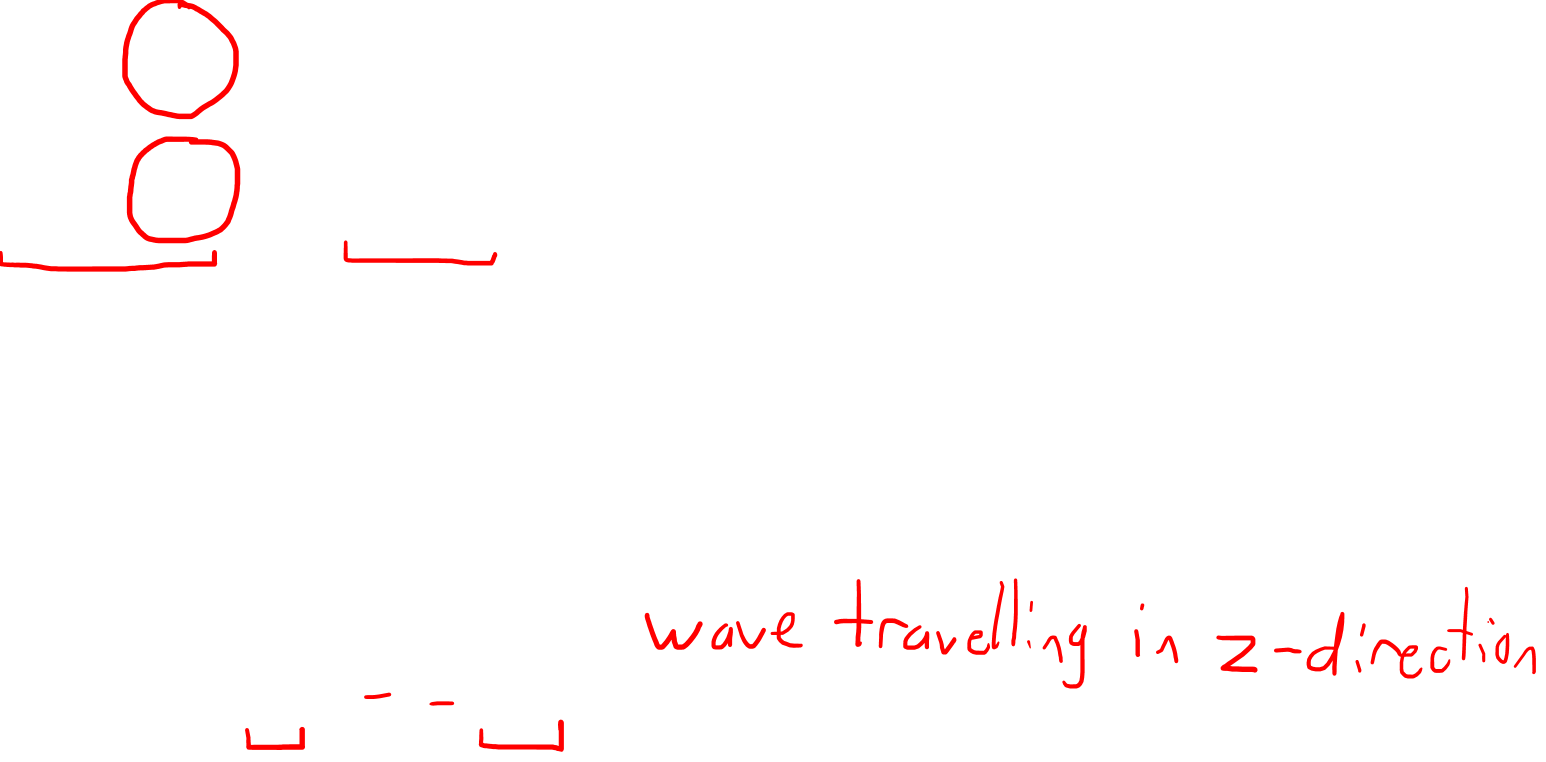 wave travelling in z-direction